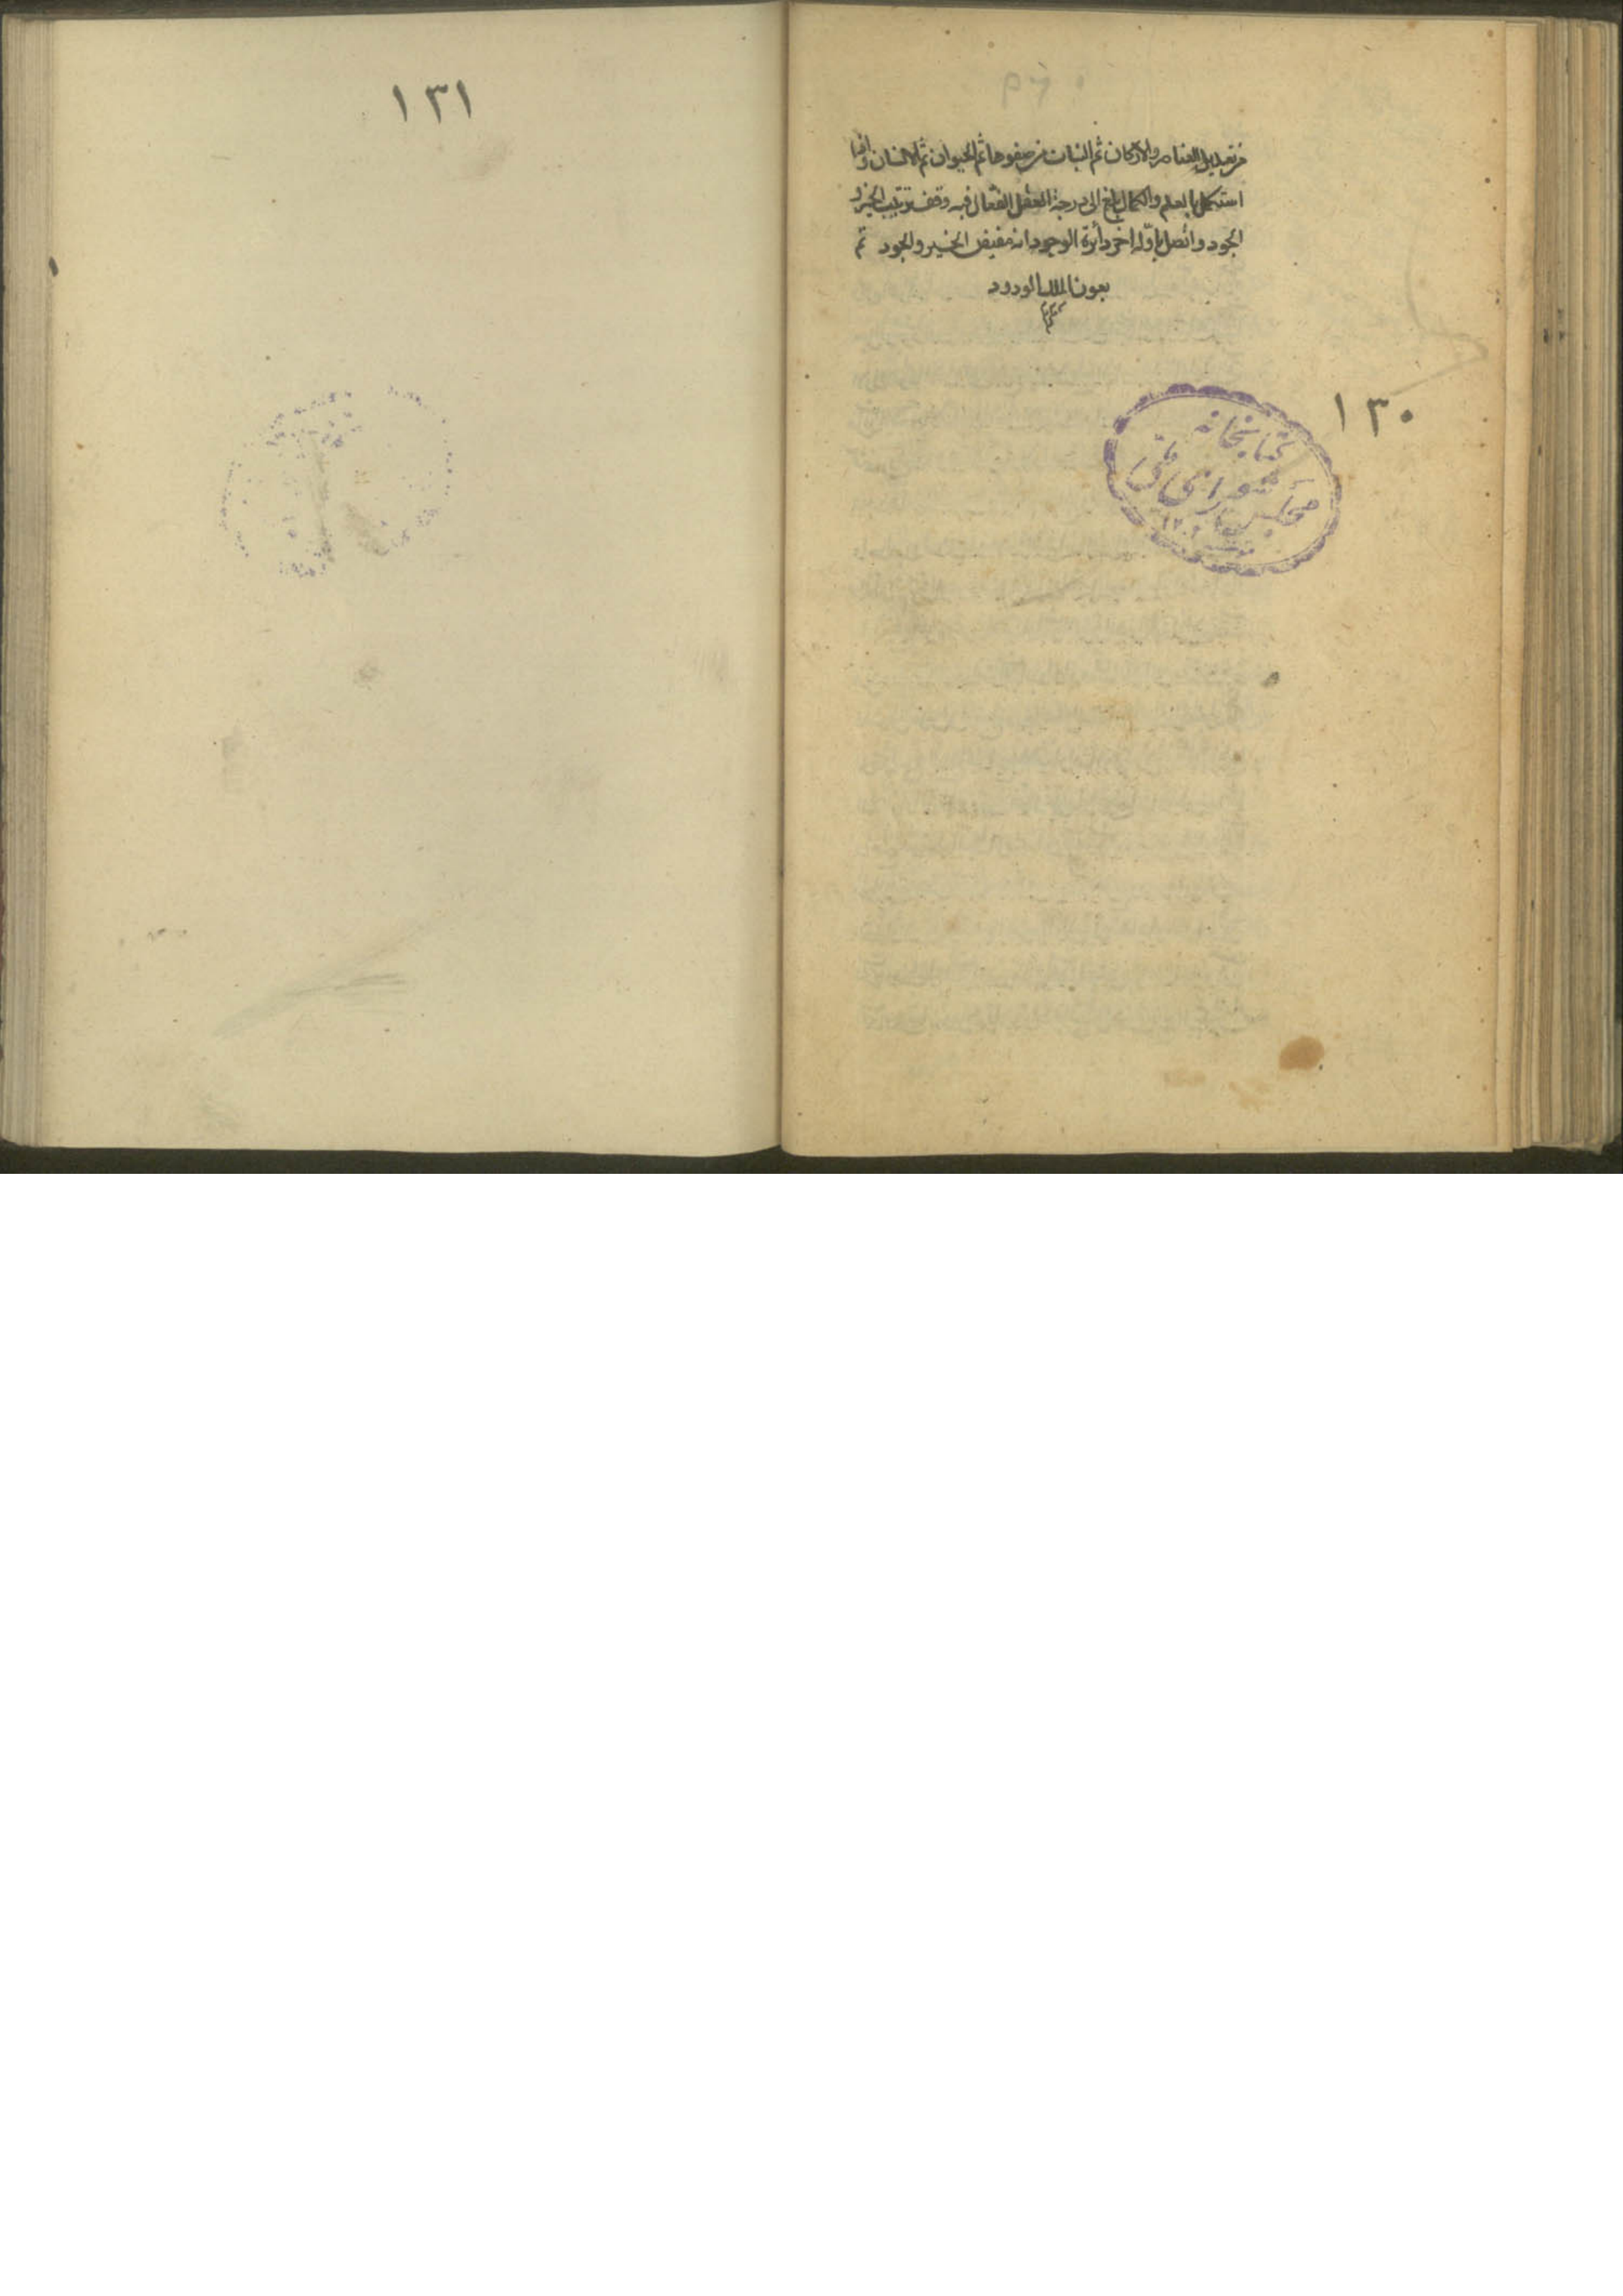 من تعديل العناصر والاركان ثم النبات من صفوها ثم الحيوان ثم الانسان واذا
استكمل بالعلم والكمال بلغ الى درجة العقل الفعال فبه وقف ترتيب الخير و
الجود واتصل باوّله اخر دائرة الوجود انه مفيض الخير والجود تم
بعون الملك الودود
١٣٠
كتابخانه
مجلس شورای ملی
١٣١